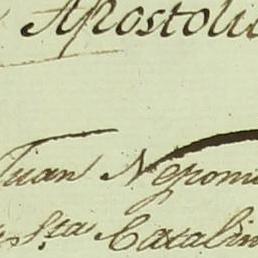 Apostoli
Juan Nepom
Sta Catalin